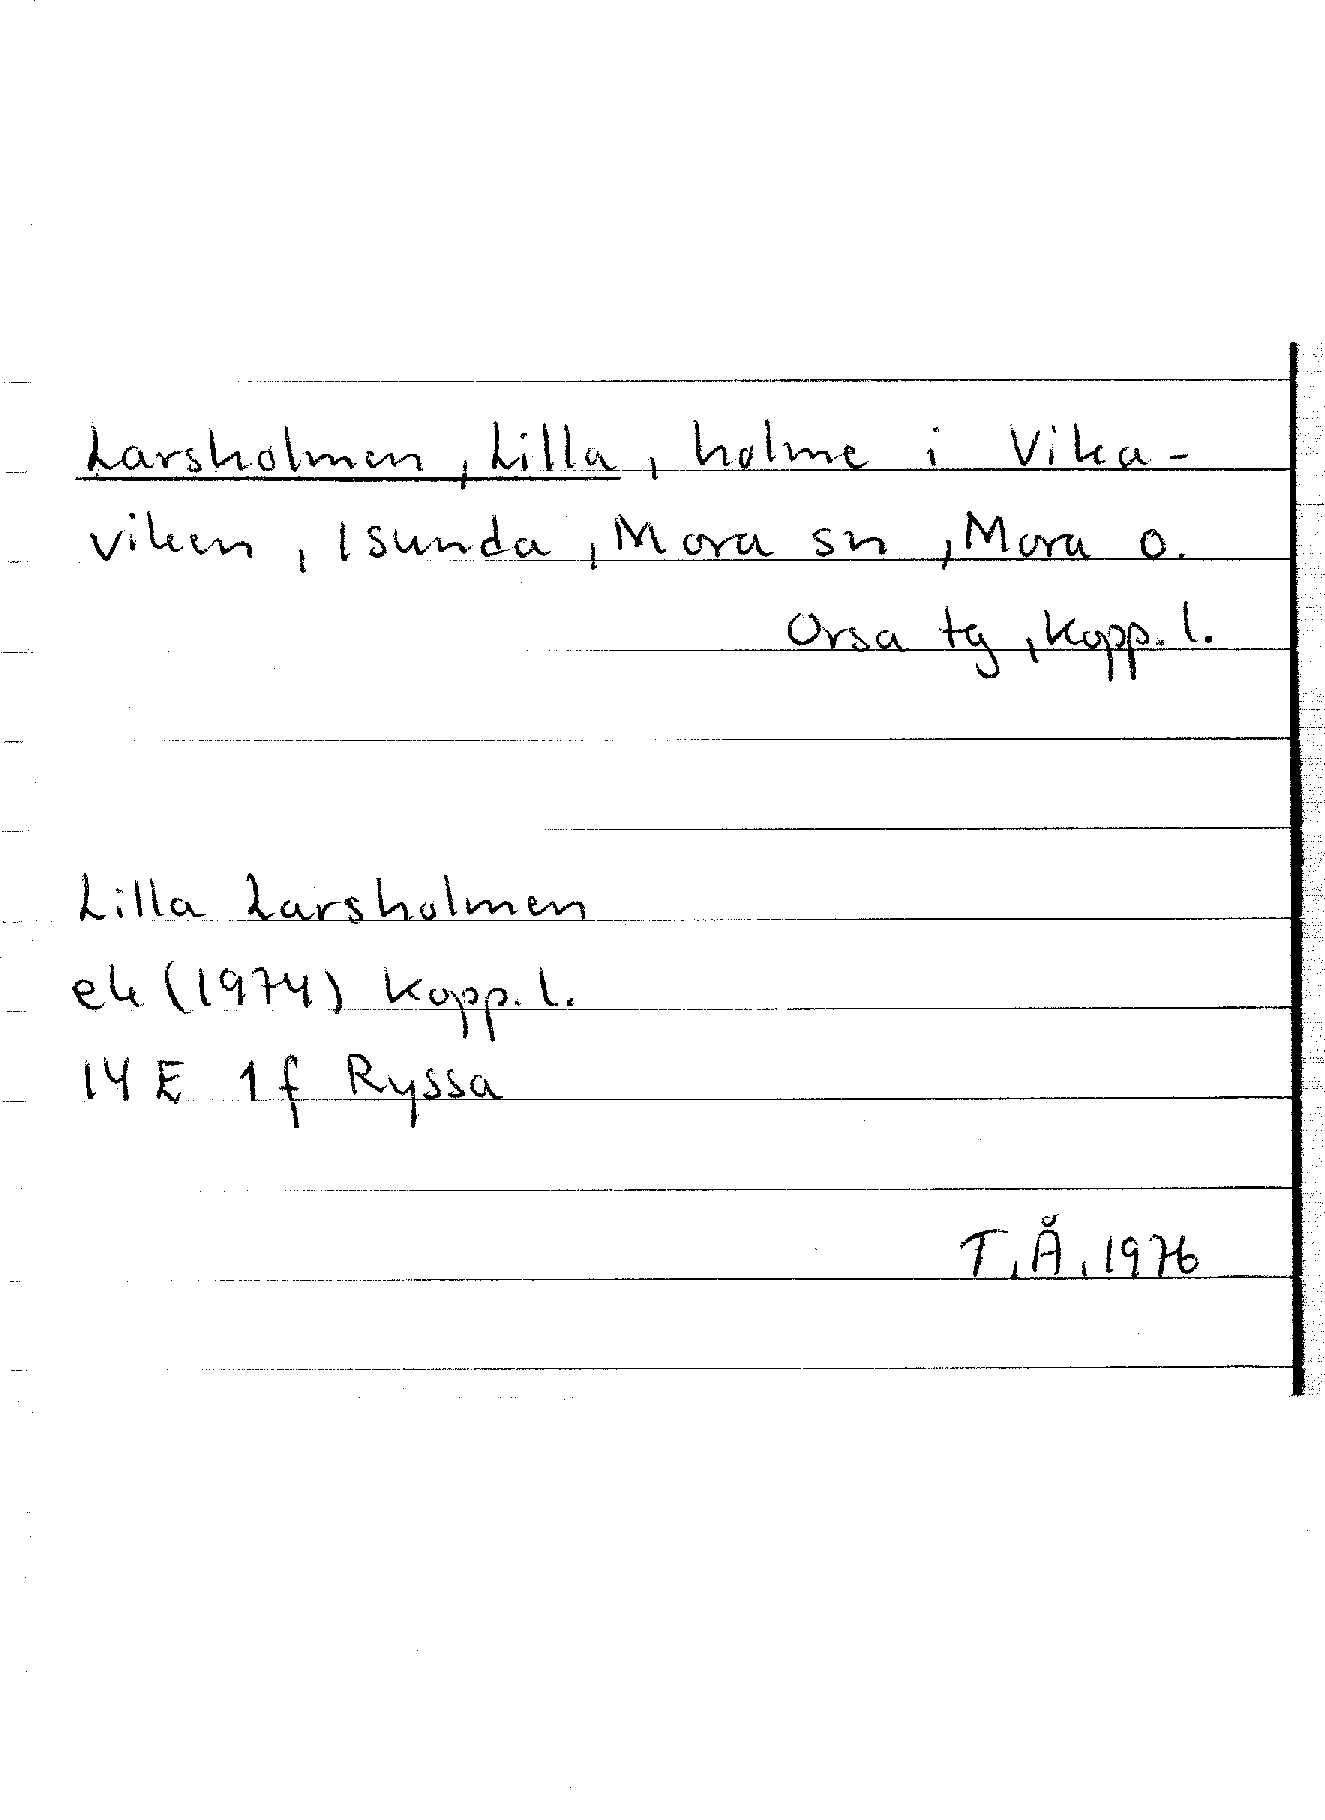 Larsholmen, Lilla, holme i Vika-
viken, Isunda, Mora sn, Mora o.
Orsa tg, Kopp. l.
Lilla Larsholmen
ek (1974) Kopp. l.
14 E 1 f Ryssa
T. Å. 1976